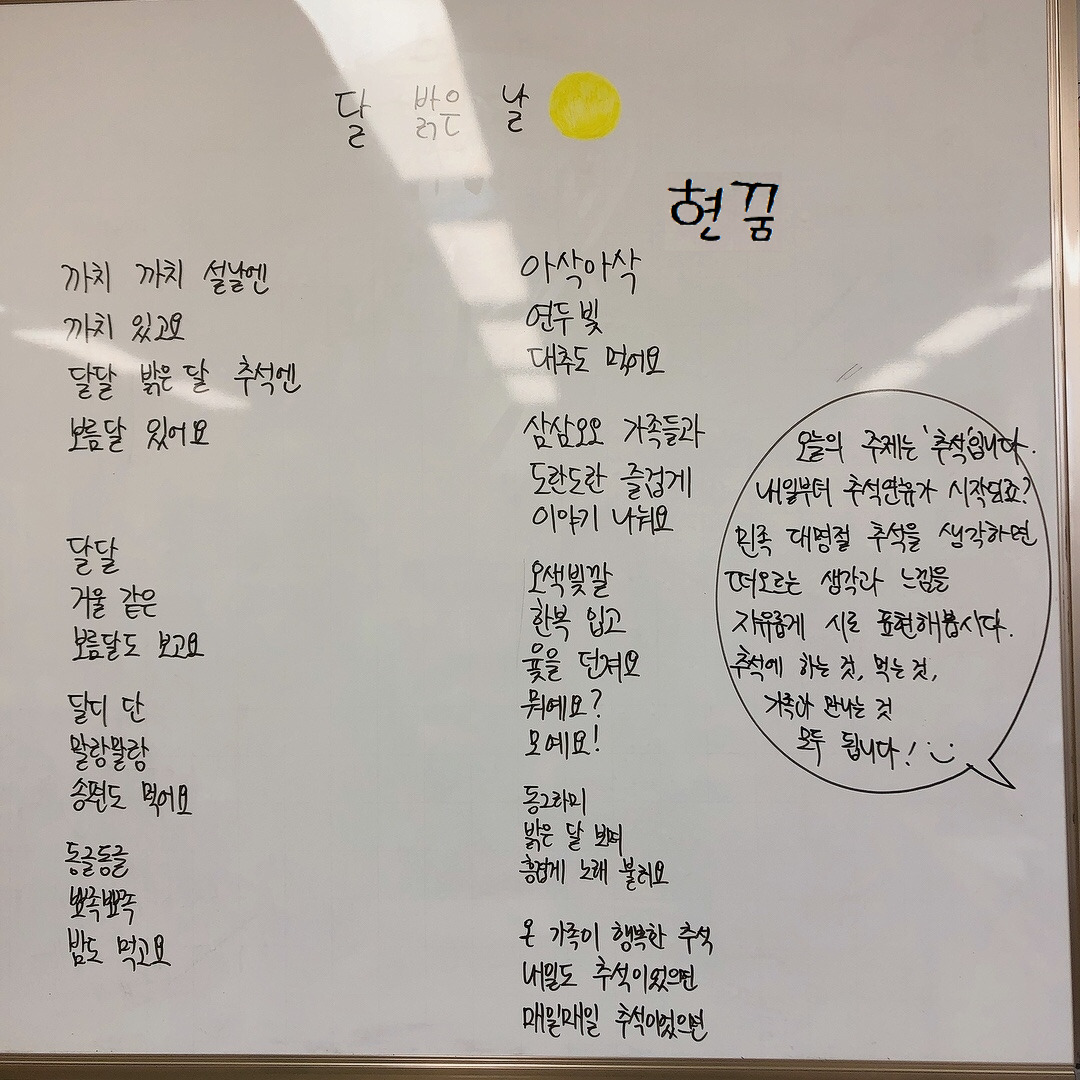 달 밝은 날
현꿈
까치 까치 설날엔
까치 있고요
달달 밝은 달 추석엔
보름달 있어요
달달
거울 같은
보름달도 보고요
달디 단
말랑말랑
송편도 먹어요
동글동글
뾰족뾰족
밤도 먹고요
아삭아삭
연두빛
대추도 먹어요
삼삼오오 가족들과
도란도란 즐겁게
이야기 나눠요
오색빛깔
한복 입고
윷을 던져요
뭐예요?
모예요!
동그라미
밝은 달 보며
흥겹게 노래 불러요
온 가족이 행복한 추석
내일도 추석이었으면
매일매일 추석이었으면
오늘의 주제는 '추석'입니다.
내일부터 추석연휴가 시작되죠?
민족 대명절 추석을 생각하면
떠오르는 생각과 느낌을
자유롭게 시로 표현해봅시다.
추석에 하는 것, 먹는 것,
가족과 만나는 것
모두 됩니다!